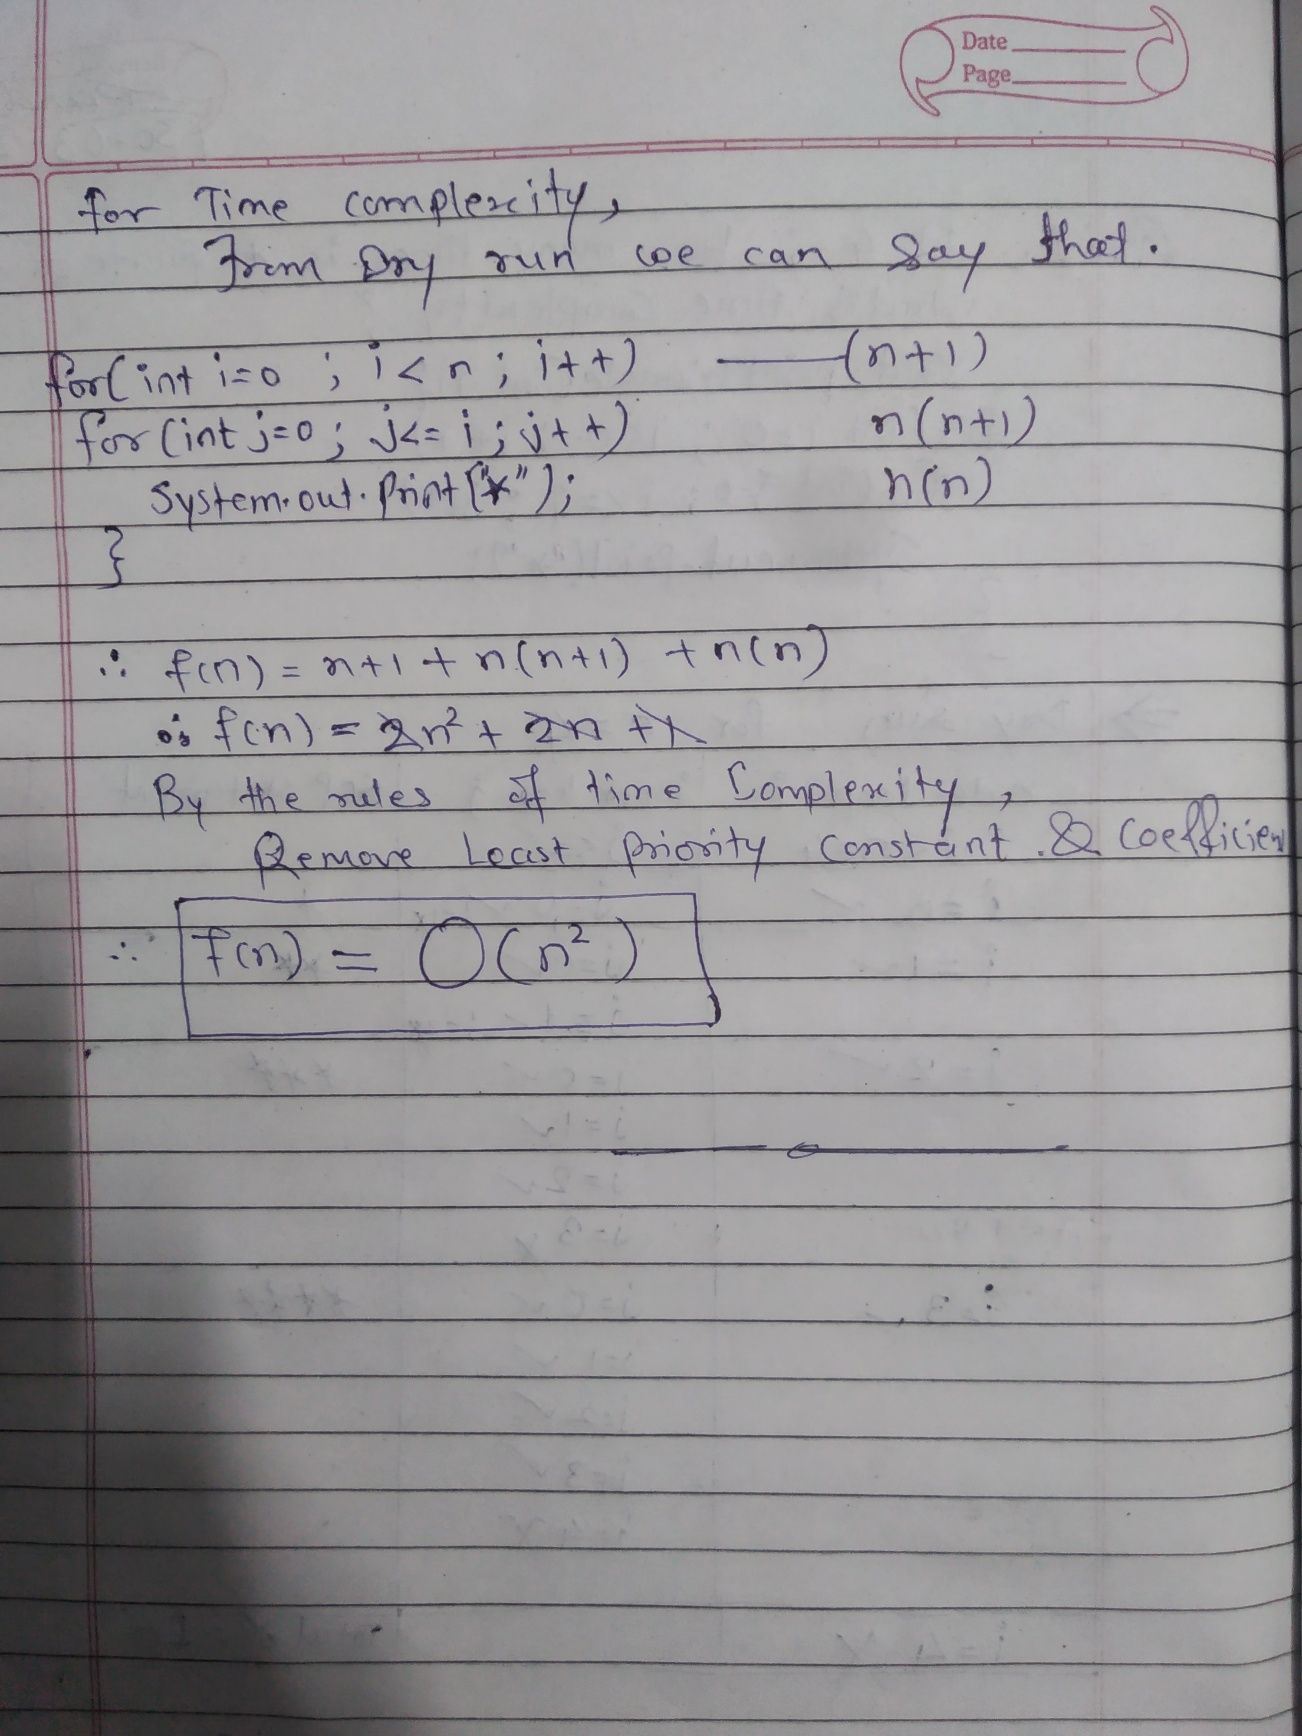 Date
Page
for Time complexity,
From Dry run we can say that.
for(int i=0 ; i<n ; i++) —— (n+1)
for(int j=0 ; j<=i ; j++) n(n+1)
System.out.print("*"); n(n)
}
∴ f(n) = n+1 + n(n+1) + n(n)
∴ f(n) = 2n² + 2n + 1
By the rules of time Complexity,
Remove Least priority constant & coefficien
∴ f(n) = O(n²)